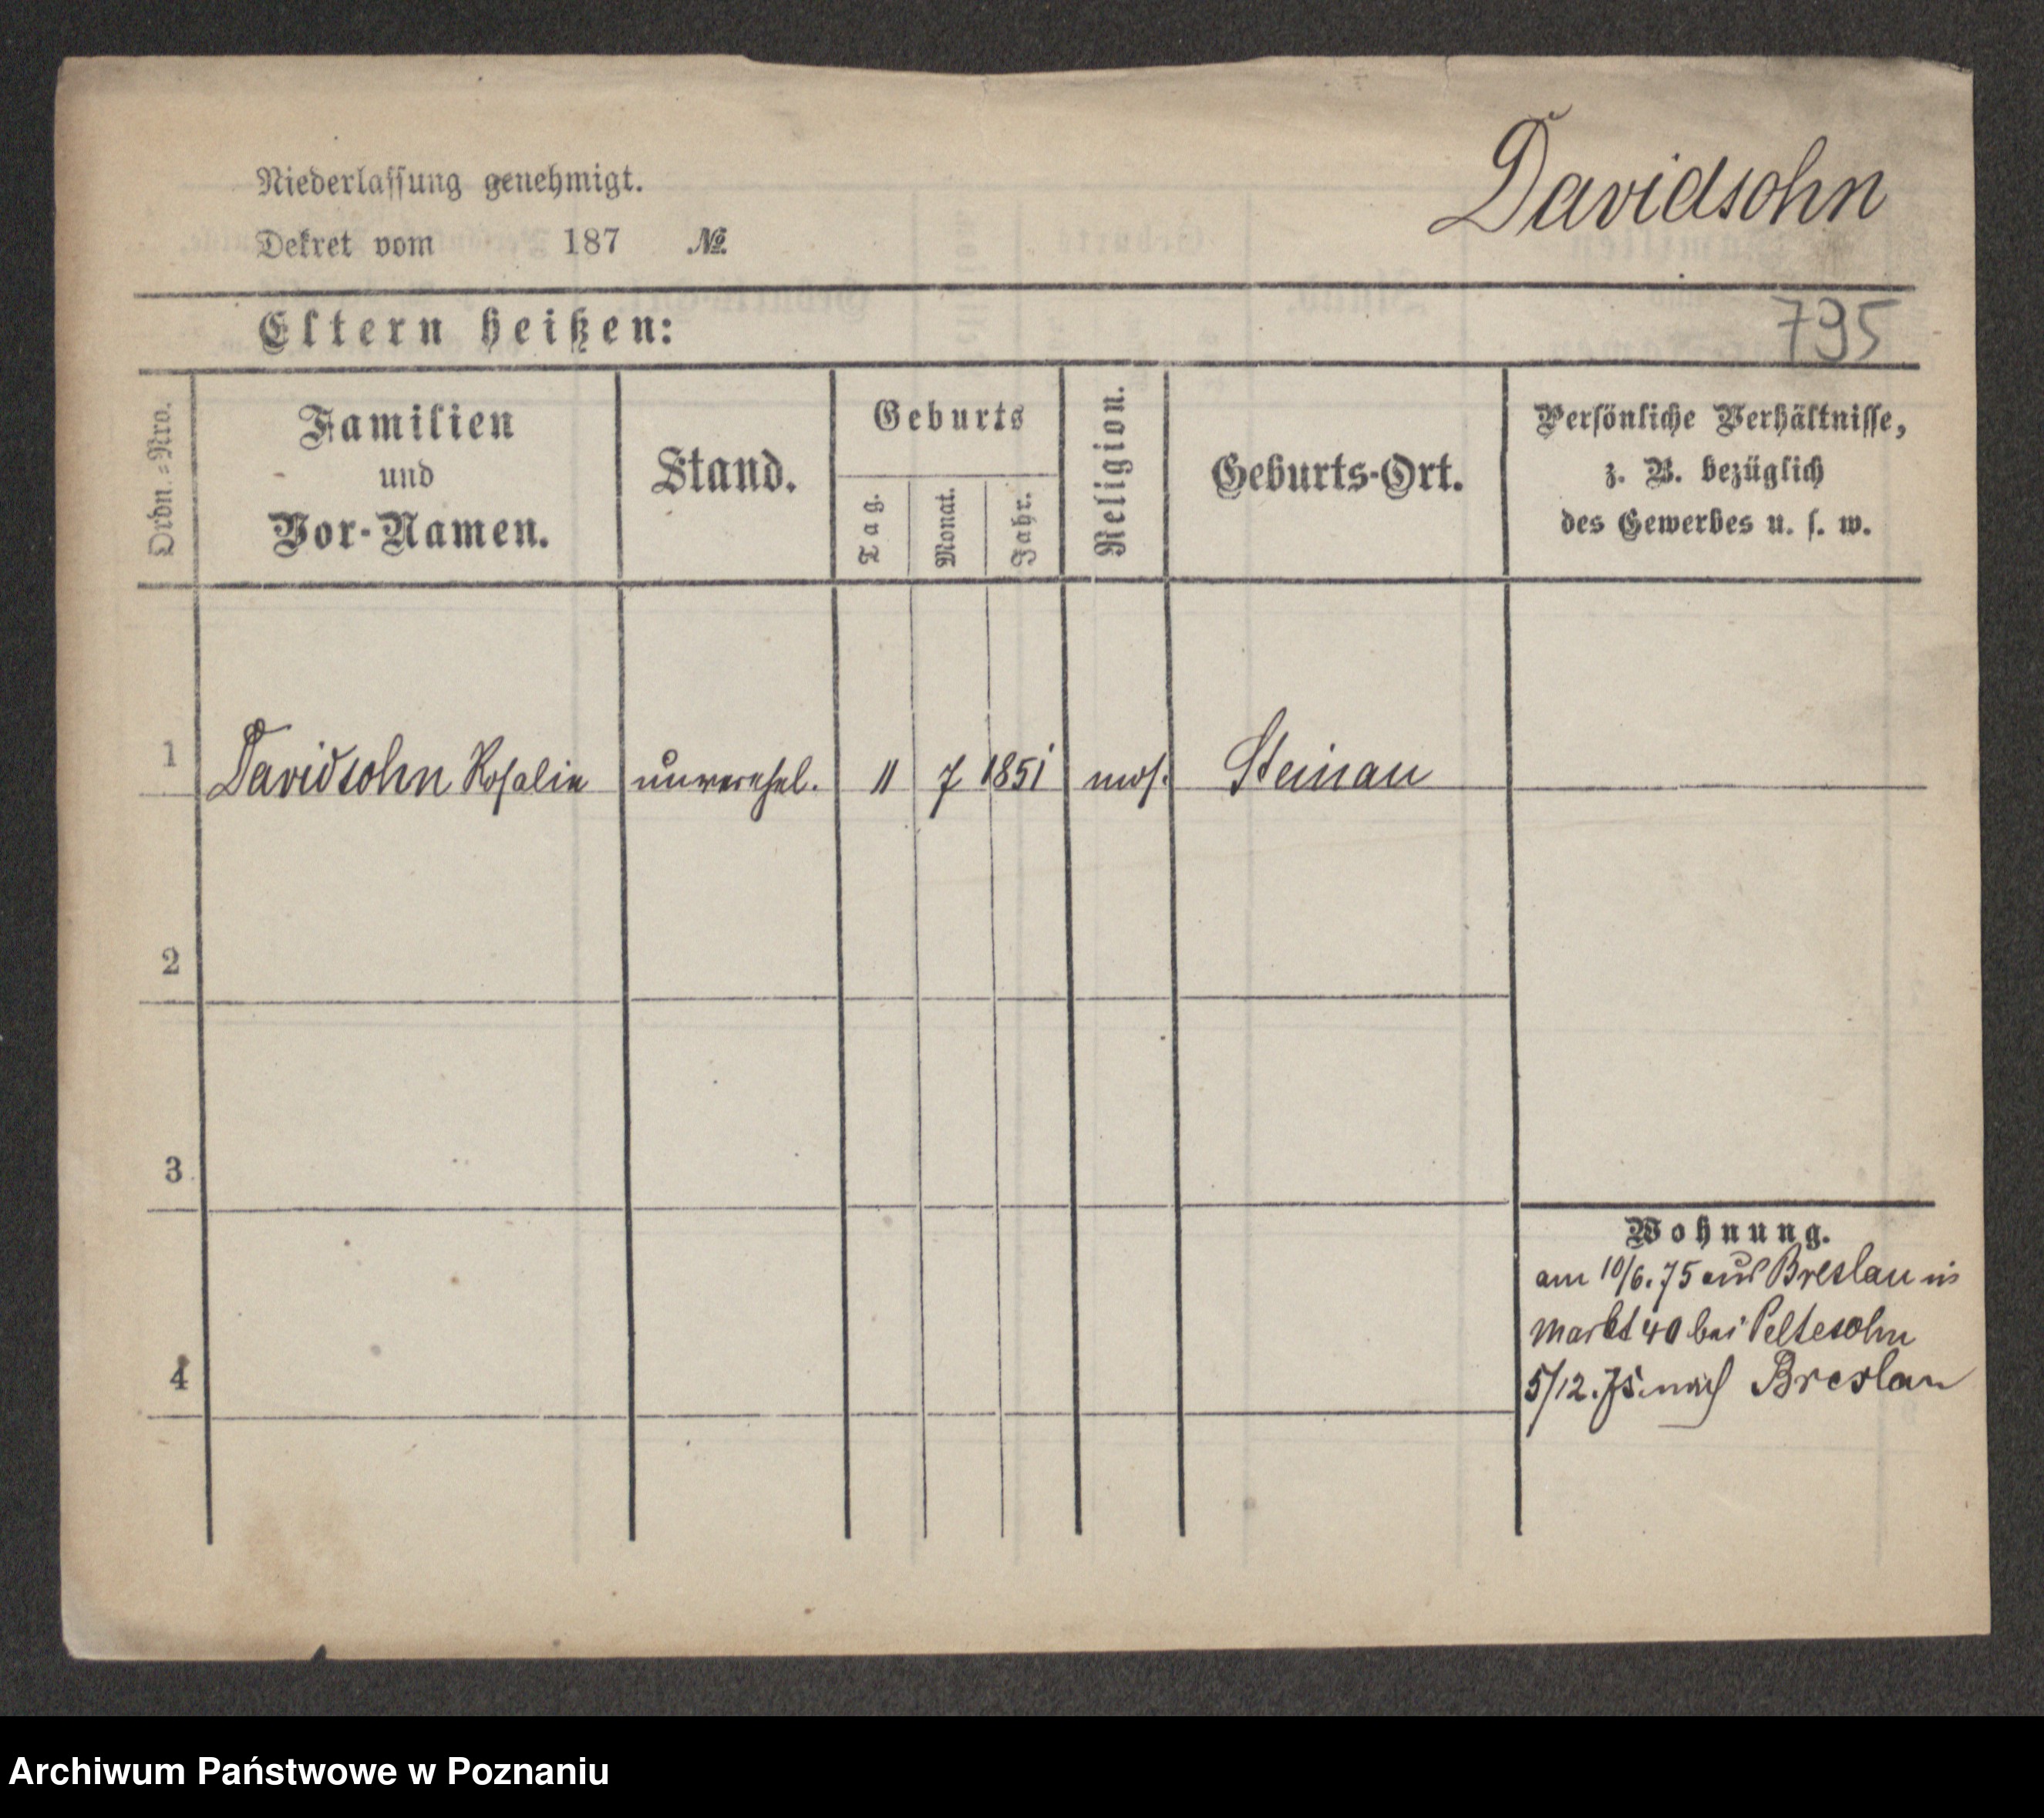 Davidsohn
Niederlassung genehmigt.
Dekret vom 187 №
795
Eltern heißen:
Ordn.=Nro.
Familien
und
Vor-Namen.
Stand.
Geburts
Tag.
Monat.
Jahr.
Religion.
Geburts-Ort.
Persönliche Verhältnisse,
z. B. bezüglich
des Gewerbes u. s. w.
1 Davidsohn Rosalie unverehel. 11 7 1851 mos. Steinau
2
3
4
Wohnung.
am 10/6. 75 aus Breslau in
Markt 40 bei Peltesohn
5/12. 75. nach Breslau
Archiwum Państwowe w Poznaniu